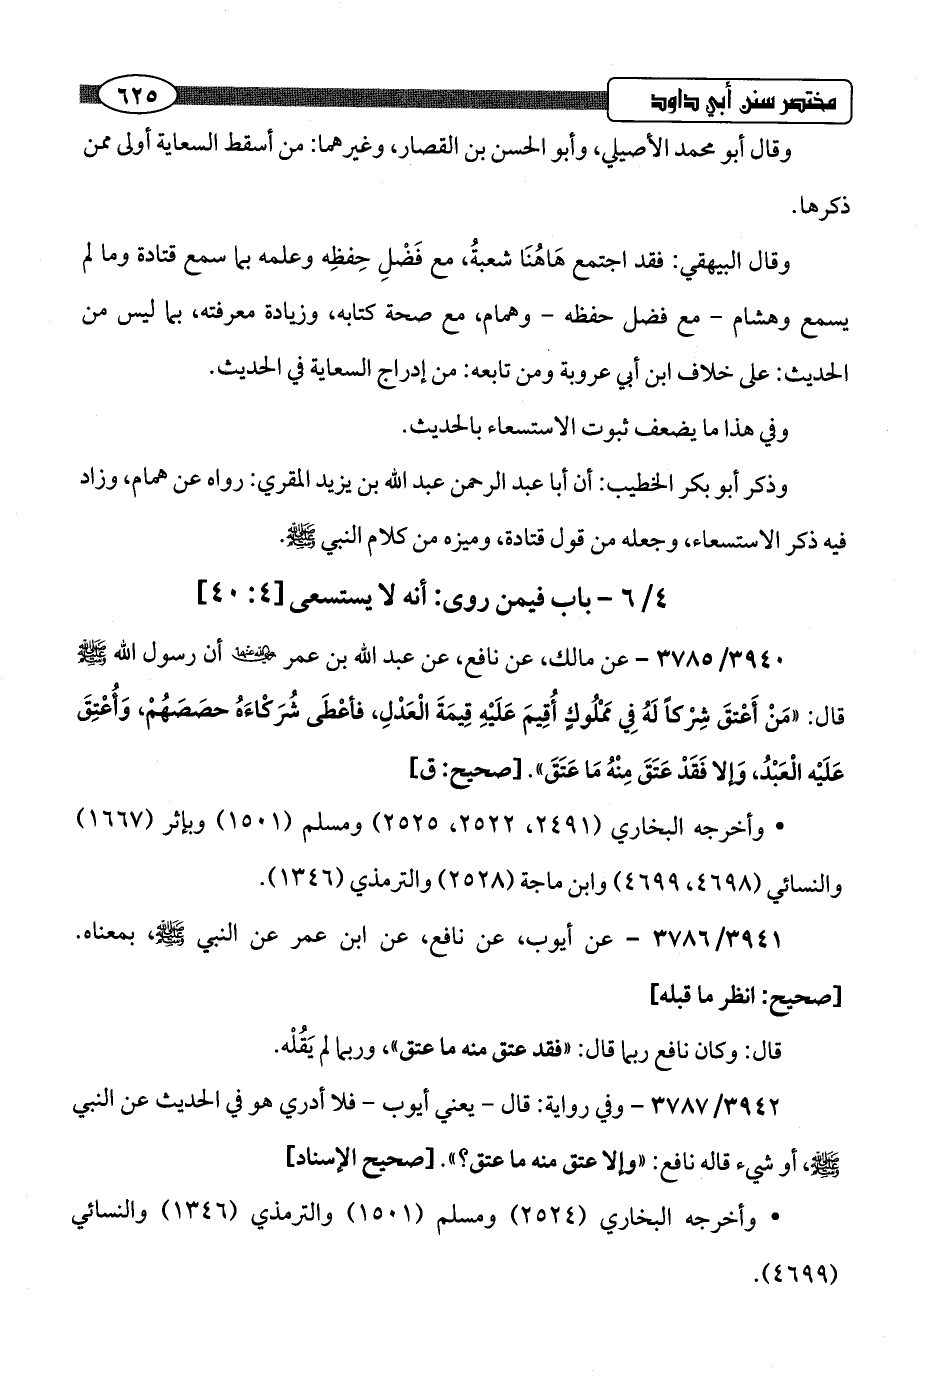 مختصر سنن أبي داود
٦٢٥
وقال أبو محمد الأصيلي، وأبو الحسن بن القصار، وغيرهما: من أسقط السعاية أولى ممن
ذكرها.
وقال البيهقي: فقد اجتمع هَاهُنَا شعبةُ، مع فَضْلِ حِفظِه وعلمه بما سمع قتادة وما لم
يسمع وهشام - مع فضل حفظه - وهمام، مع صحة كتابه، وزيادة معرفته، بما ليس من
الحديث: على خلاف ابن أبي عروبة ومن تابعه: من إدراج السعاية في الحديث.
وفي هذا ما يضعف ثبوت الاستسعاء بالحديث.
وذكر أبو بكر الخطيب: أن أبا عبد الرحمن عبد الله بن يزيد المقري: رواه عن همام، وزاد
فيه ذكر الاستسعاء، وجعله من قول قتادة، وميزه من كلام النبي ﷺ.
٦/٤ - باب فيمن روى: أنه لا يستسعى [٤: ٤٠]
٣٧٨٥/٣٩٤٠ - عن مالك، عن نافع، عن عبد الله بن عمر رضي الله عنهما أن رسول الله ﷺ
قال: «مَنْ أَعْتقَ شِرْكاً لَهُ فِي مَمْلُوكٍ أُقِيمَ عَلَيْهِ قِيمَةَ الْعَدْلِ، فأعْطَى شُرَكَاءَهُ حصَصَهُمْ، وَأُعْتِقَ
عَلَيْه الْعَبْدُ، وَإلا فَقَدْ عَتَقَ مِنْهُ مَا عَتَقَ». [صحيح: ق]
• وأخرجه البخاري (٢٤٩١، ٢٥٢٢، ٢٥٢٥) ومسلم (١٥٠١) وبإثر (١٦٦٧)
والنسائي (٤٦٩٨، ٤٦٩٩) وابن ماجة (٢٥٢٨) والترمذي (١٣٤٦).
٣٧٨٦/٣٩٤١ - عن أيوب، عن نافع، عن ابن عمر عن النبي ﷺ، بمعناه.
[صحيح: انظر ما قبله]
قال: وكان نافع ربما قال: «فقد عتق منه ما عتق»، وربما لم يَقُلْه.
٣٧٨٧/٣٩٤٢ - وفي رواية: قال - يعني أيوب - فلا أدري هو في الحديث عن النبي
ﷺ، أو شيء قاله نافع: «وإلا عتق منه ما عتق؟». [صحيح الإسناد]
• وأخرجه البخاري (٢٥٢٤) ومسلم (١٥٠١) والترمذي (١٣٤٦) والنسائي
(٤٦٩٩).